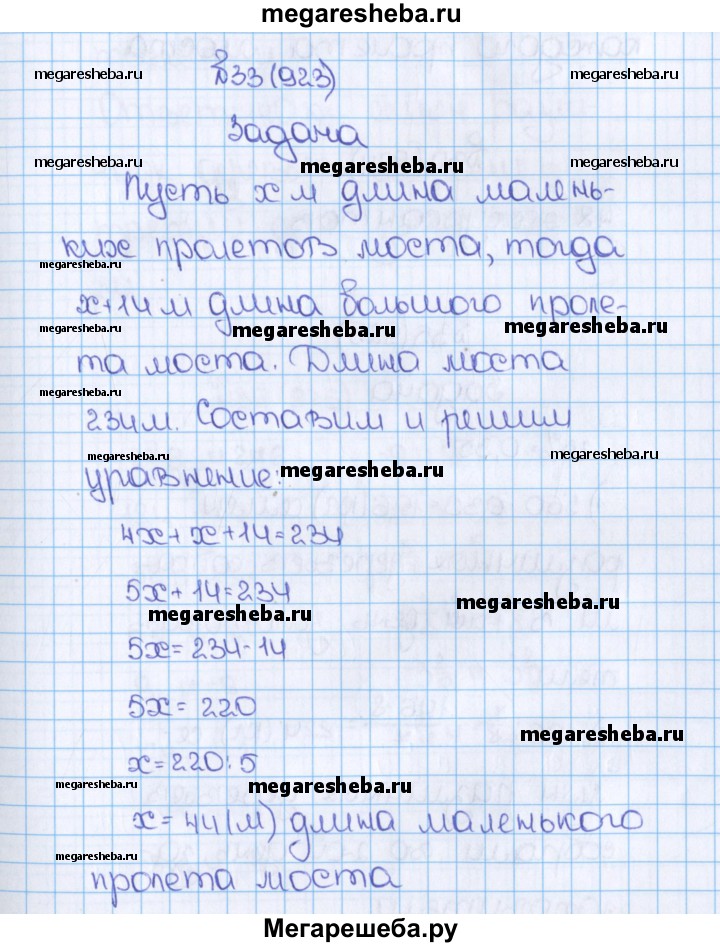 megaresheba.ru
№33(923)
megaresheba.ru megaresheba.ru
Задача
megaresheba.ru megaresheba.ru megaresheba.ru
Пусть x м длина малень-
ких пролетов моста, тогда
megaresheba.ru
x+14 м длина большого проле-
megaresheba.ru megaresheba.ru megaresheba.ru
та моста. Длина моста
megaresheba.ru
234м. Составим и решим
megaresheba.ru megaresheba.ru megaresheba.ru
уравнение:
4x+x+14=234
5x+14=234
megaresheba.ru megaresheba.ru
5x=234-14
5x=220
megaresheba.ru
x=220:5
megaresheba.ru megaresheba.ru
x=44(м) длина маленького
megaresheba.ru
пролета моста
Мегарешеба.ру